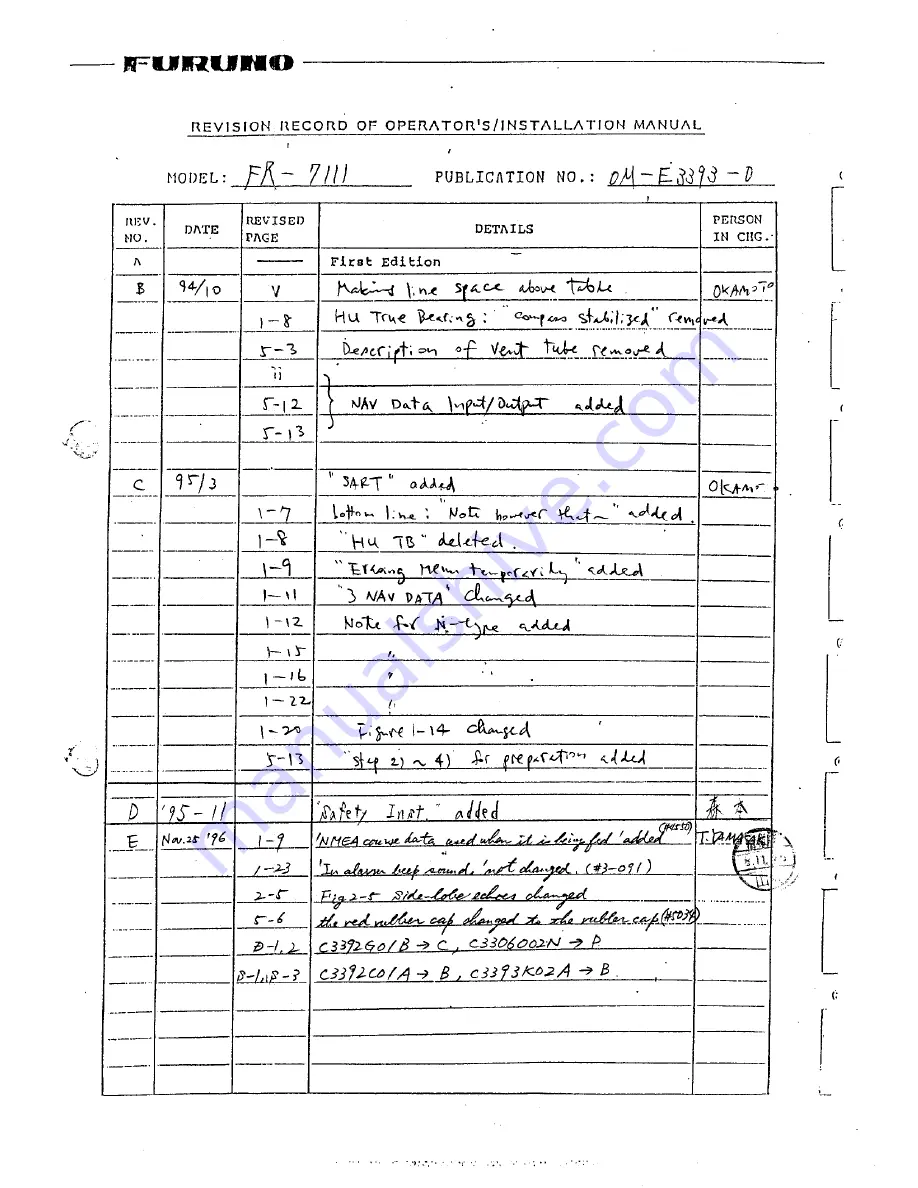 FURUNO
REVISION RECORD OF OPERATOR'S/INSTALLATION MANUAL
MODEL: FR-7111 PUBLICATION NO.: OM-E3393-D
REV. NO. DATE REVISED PAGE DETAILS PERSON IN CHG.
A —— First Edition
B 94/10 V Making line space above table OKAMOTO
1-8 HU True Bearing: "compass stabilized" removed
5-3 Description of vent tube removed
ii
5-12 NAV Data Input/Output added
5-13
C 95/3 "SART" added OKAMO
1-7 bottom line: "Note however that~" added.
1-8 "HU TB" deleted.
1-9 "Erasing menu temporarily" added
1-11 "3 NAV DATA" changed
1-12 Note for N-type added
1-15 "
1-16 "
1-22 "
1-20 Figure 1-14 changed
5-13 "step 2) ~ 4) for preparation added
D '95-11 "Safety Inst." added 森本
E Nov.25 '96 1-9 'NMEA course data used when it is being fed' added T.YAMASAKI
1-23 'In alarm beep sound,' not changed. (#3-091)
2-5 Fig 2-5 Side-lobe echoes changed
5-6 the red rubber cap changed to the rubber cap
D-1,2 C3392G01/B → C, C3306002N → P
C3392C01/A → B, C3393K02A → B
manualshive.com